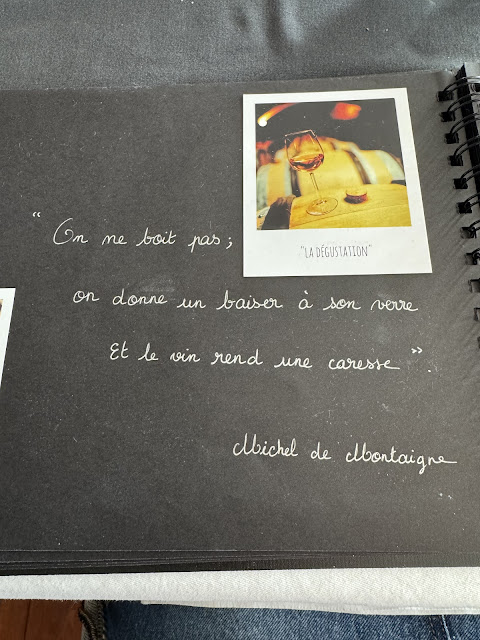 "LA DÉGUSTATION"
“ On ne boit pas ;
on donne un baiser à son verre
Et le vin rend une caresse ”.
Michel de Montaigne